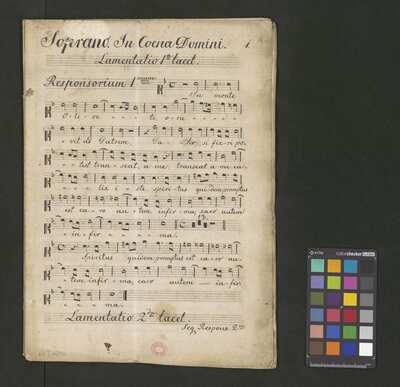 Soprano. In Coena Domini. 1
Lamentatio 1ma tacet.
Responsorium 1
In monte
O-li-ve - - - ti, o-ra - - -
vit ad Patrem. Pa - ter, si fieri po-
- - test tran-seat, a me transeat a me ca-
- - - - lix i-ste spiri-tus quidem promptus
est ca-ro au-tem infir-ma, caro autem
- in-fir - - - - - ma.
Spiritus quidem promptus est ca-ro au-
-tem infir-ma, caro autem - infir-
- - - - ma.
Lamentatio 2da tacet.
Seq. Respons. 2um